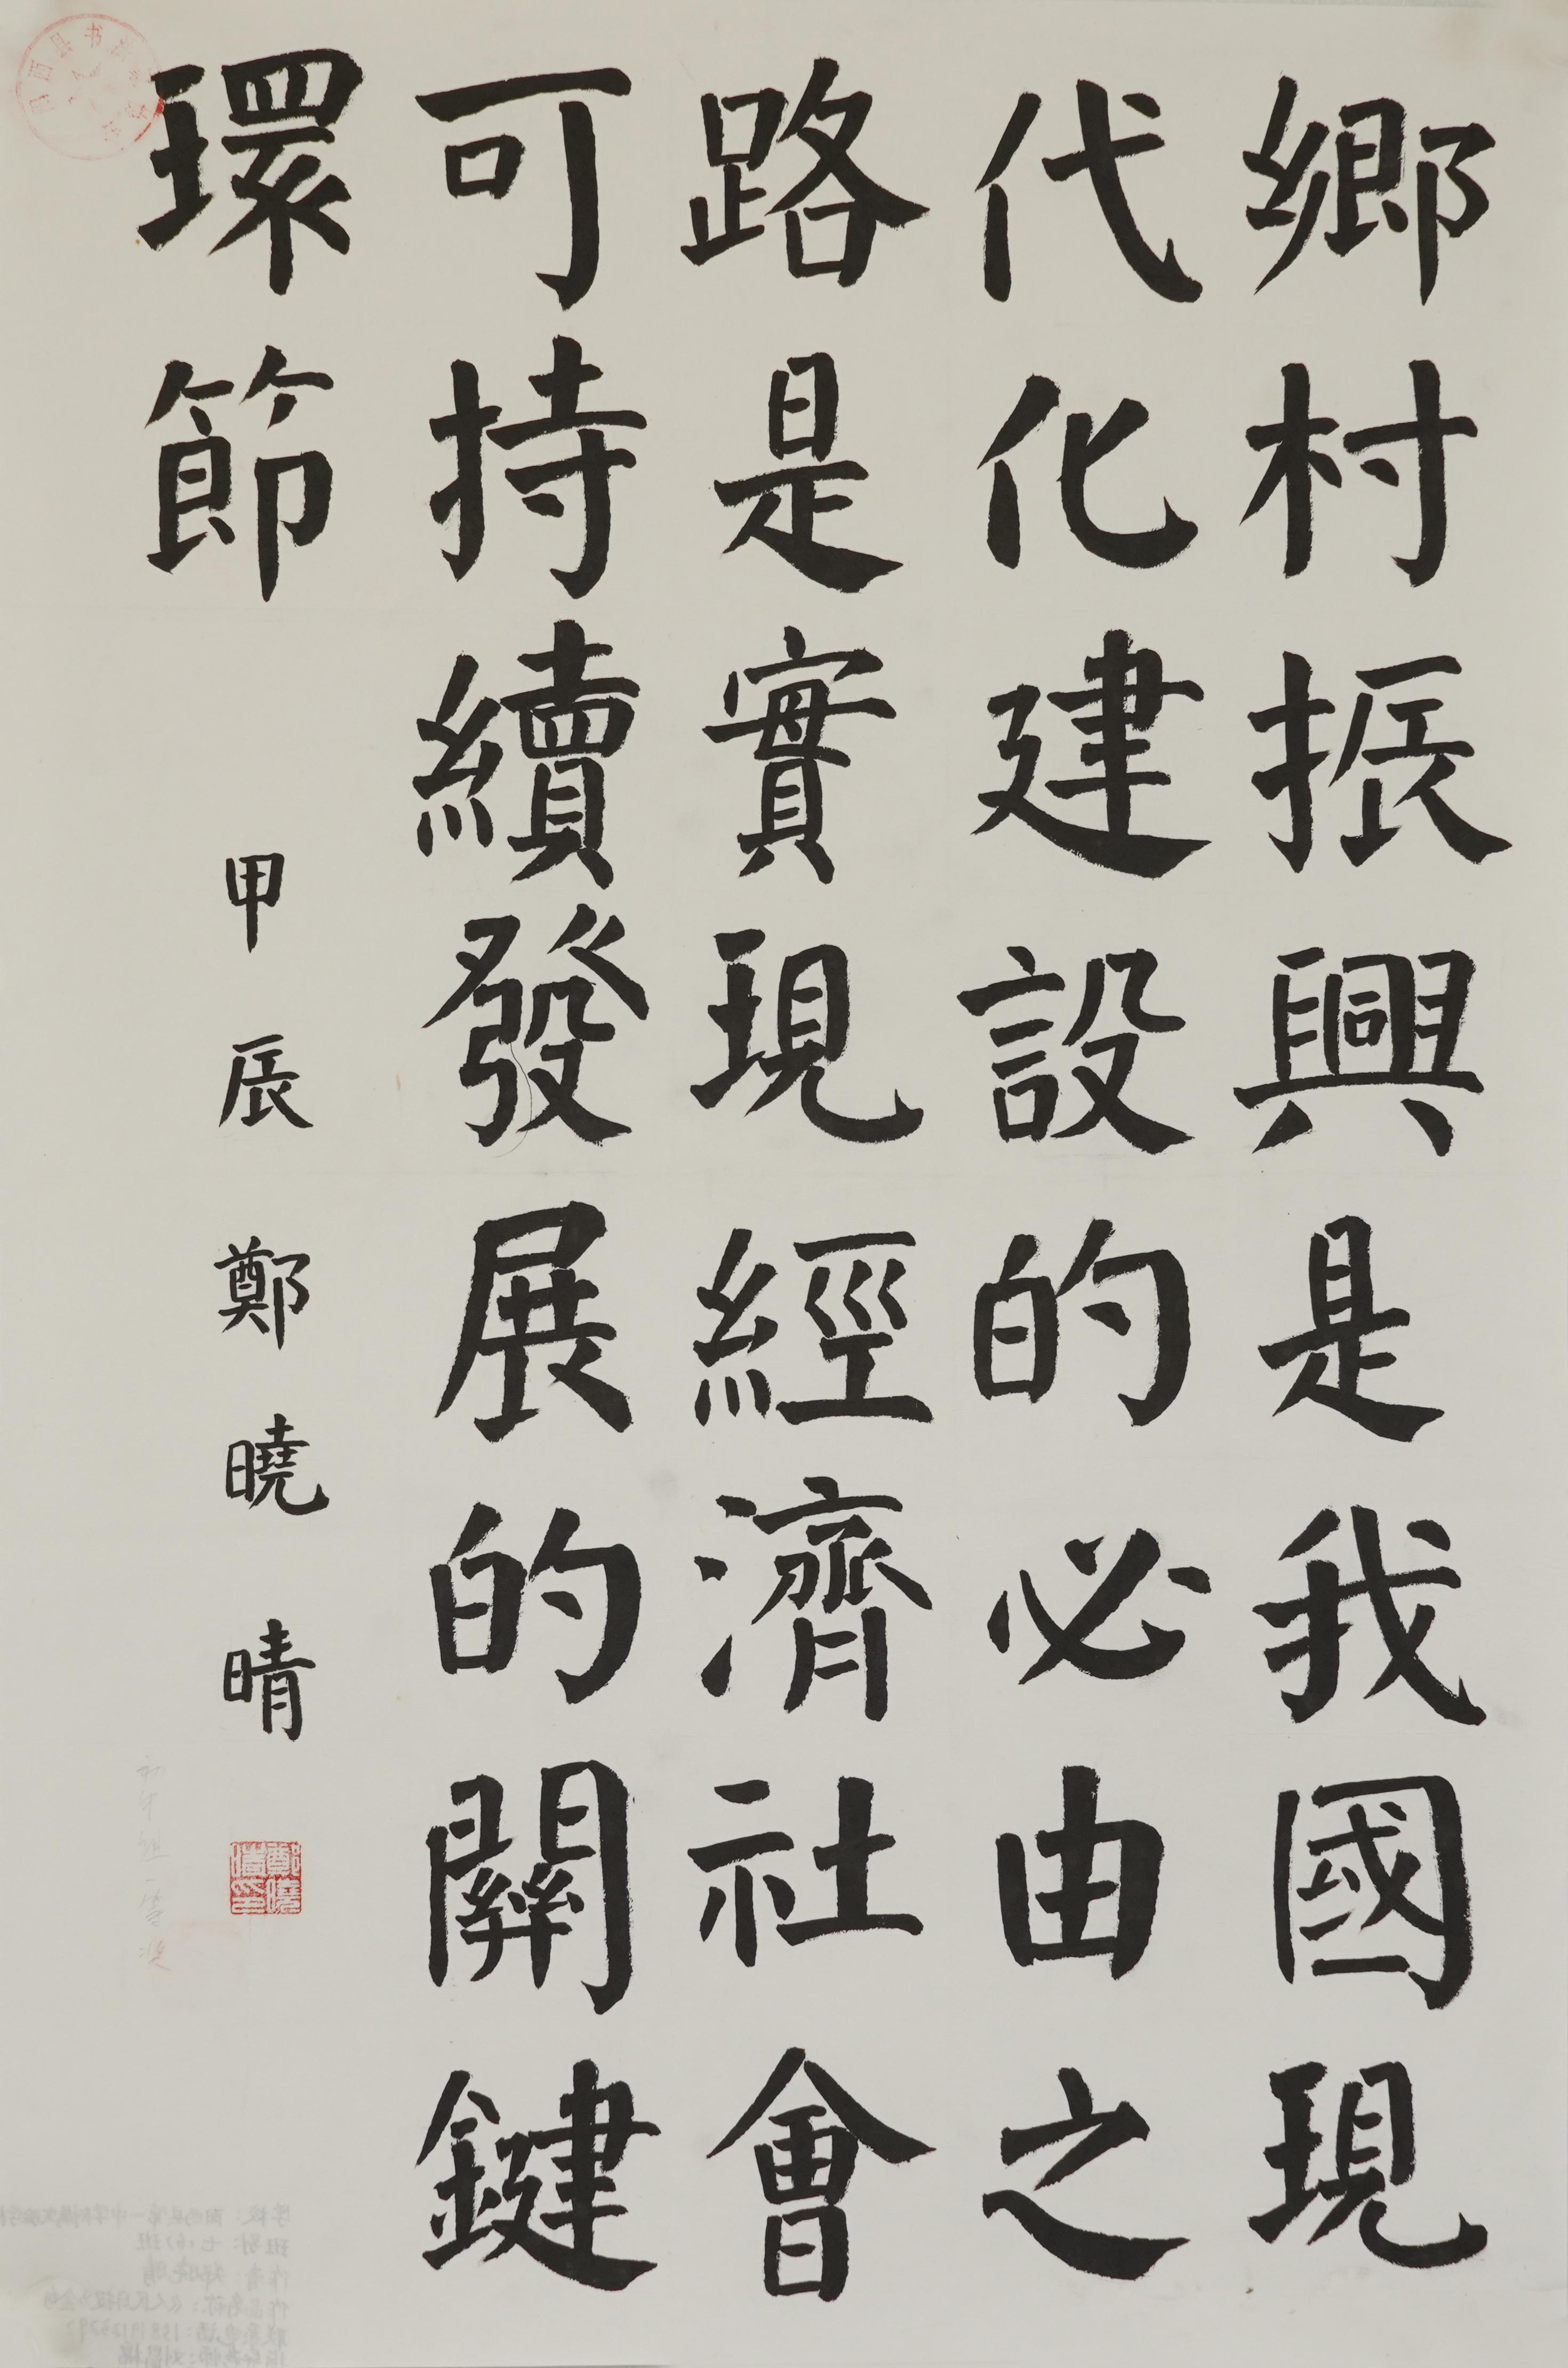 鄉村振興是我國現
代化建設的必由之
路是實現經濟社會
可持續發展的關鍵
環節
甲辰鄭曉晴
初中組一等奖